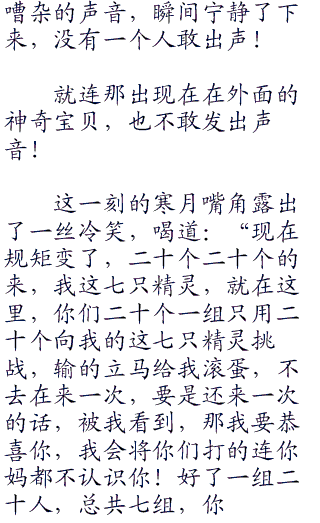 嘈杂的声音，瞬间宁静了下
来，没有一个人敢出声！
就连那出现在在外面的
神奇宝贝，也不敢发出声
音！
这一刻的寒月嘴角露出
了一丝冷笑，喝道：“现在
规矩变了，二十个二十个的
来，我这七只精灵，就在这
里，你们二十个一组只用二
十个向我的这七只精灵挑
战，输的立马给我滚蛋，不
去在来一次，要是还来一次
的话，被我看到，那我要恭
喜你，我会将你们打的连你
妈都不认识你！好了一组二
十人，总共七组，你